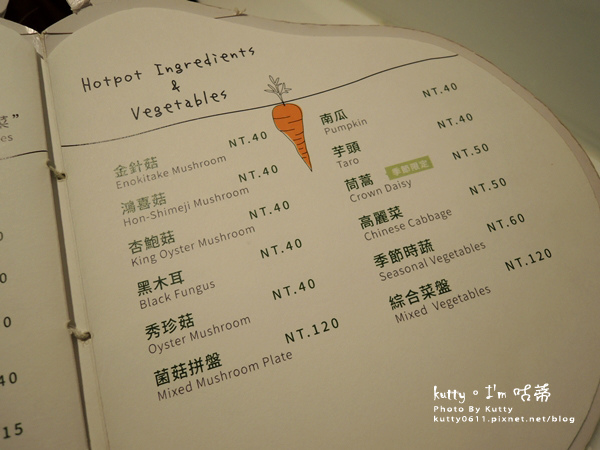 菜”
es
0
0
0
40
15
Hotpot Ingredients
&
Vegetables
金針菇 NT.40
Enokitake Mushroom
鴻喜菇 NT.40
Hon-Shimeji Mushroom
杏鮑菇 NT.40
King Oyster Mushroom
黑木耳 NT.40
Black Fungus
秀珍菇 NT.40
Oyster Mushroom
菌菇拼盤 NT.120
Mixed Mushroom Plate
南瓜 NT.40
Pumpkin
芋頭 NT.40
Taro
茼蒿 季節限定 NT.50
Crown Daisy
高麗菜 NT.50
Chinese Cabbage
季節時蔬 NT.60
Seasonal Vegetables
綜合菜盤 NT.120
Mixed Vegetables
kutty。I'm 咕蒂
Photo By Kutty
kutty0611.pixnet.net/blog